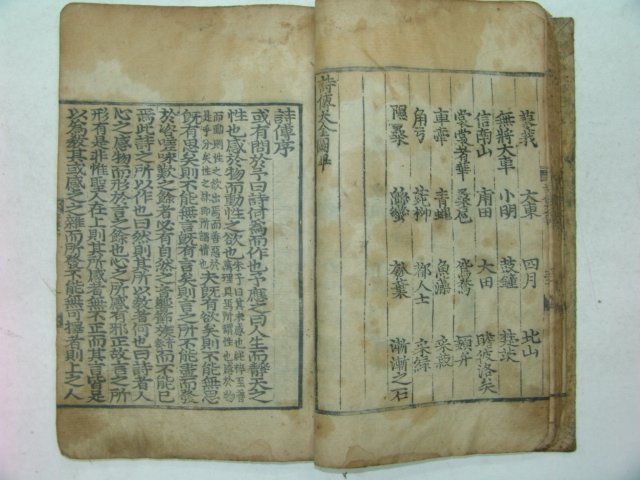 蓼莪 大東 四月 北山
無將大車 小明 鼓鐘 楚茨
信南山 甫田 大田 瞻彼洛矣
裳裳者華 桑扈 鴛鴦 頍弁
車舝 青蠅 魚藻 采菽
角弓 菀柳 都人士 采綠
隰桑 緜蠻 瓠葉 漸漸之石
詩傳大全圖畢
詩傳序
或有問於予曰詩何爲而作也予應之曰人生而靜天之
性也感於物而動性之欲也
夫旣有欲矣則不能無思
旣有思矣則不能無言旣有言矣則言之所不能盡而發
於咨嗟咏歎之餘者必有自然之音響節族而不能已
焉此詩之所以作也曰然則其所以敎者何也曰詩者人
心之感物而形於言之餘也心之所感有邪正故言之所
形有是非惟聖人在上則其所感者無不正而其言皆足
以爲敎其或感之之雜而所發不能無可擇者則上之人